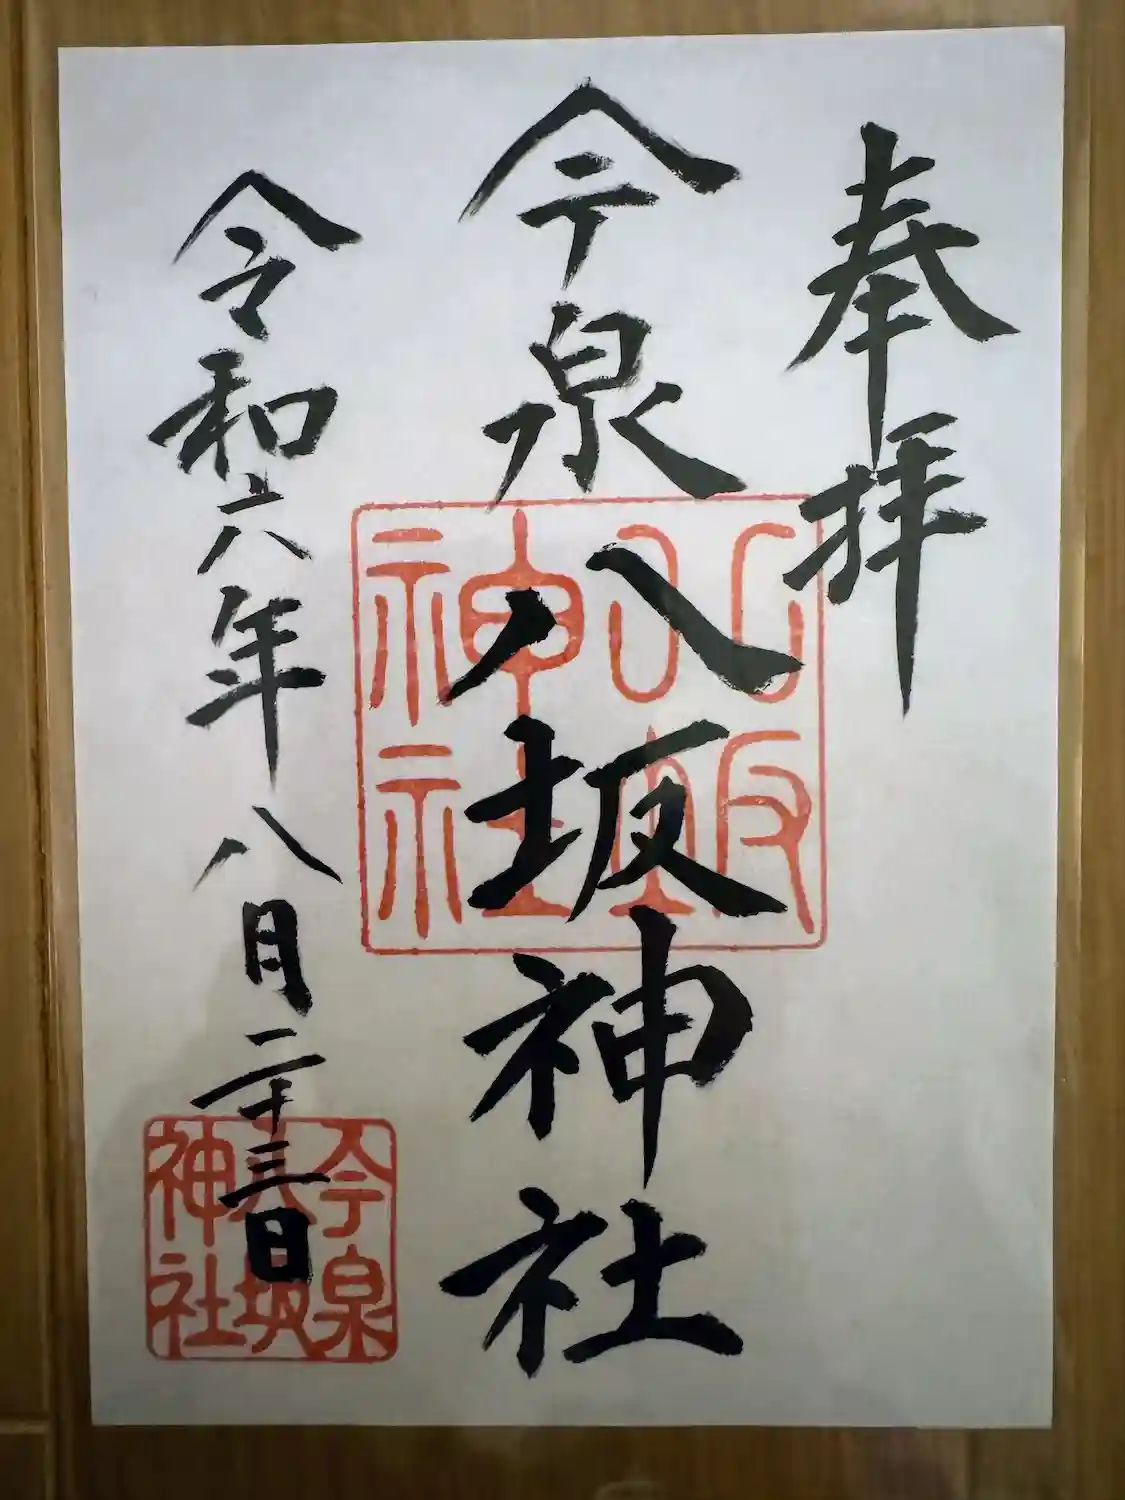 奉拝
今泉八坂神社
八坂神社
令和六年八月二十三日
今泉八坂神社